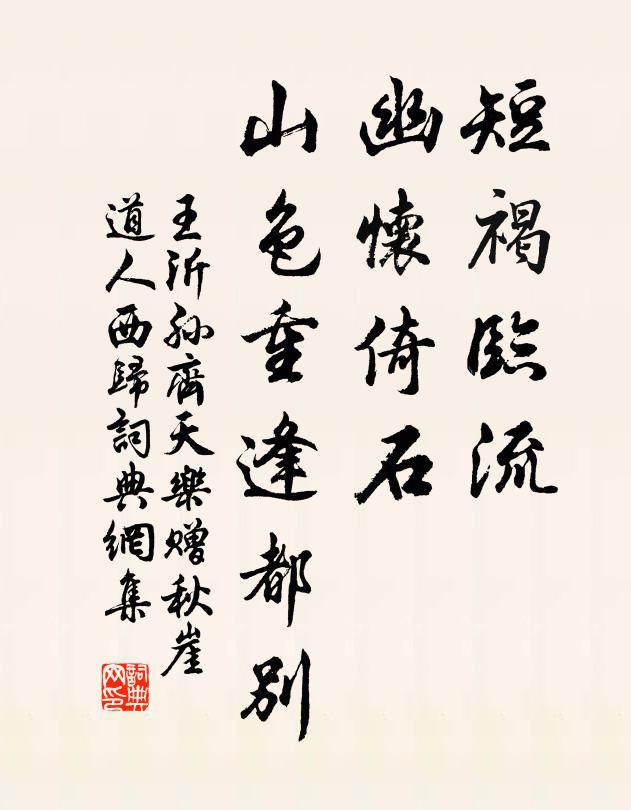 短褐臨流
幽懷倚石
山色重逢都別
王沂孫齊天樂贈秋崖
道人西歸詞典網集
詞典
网印